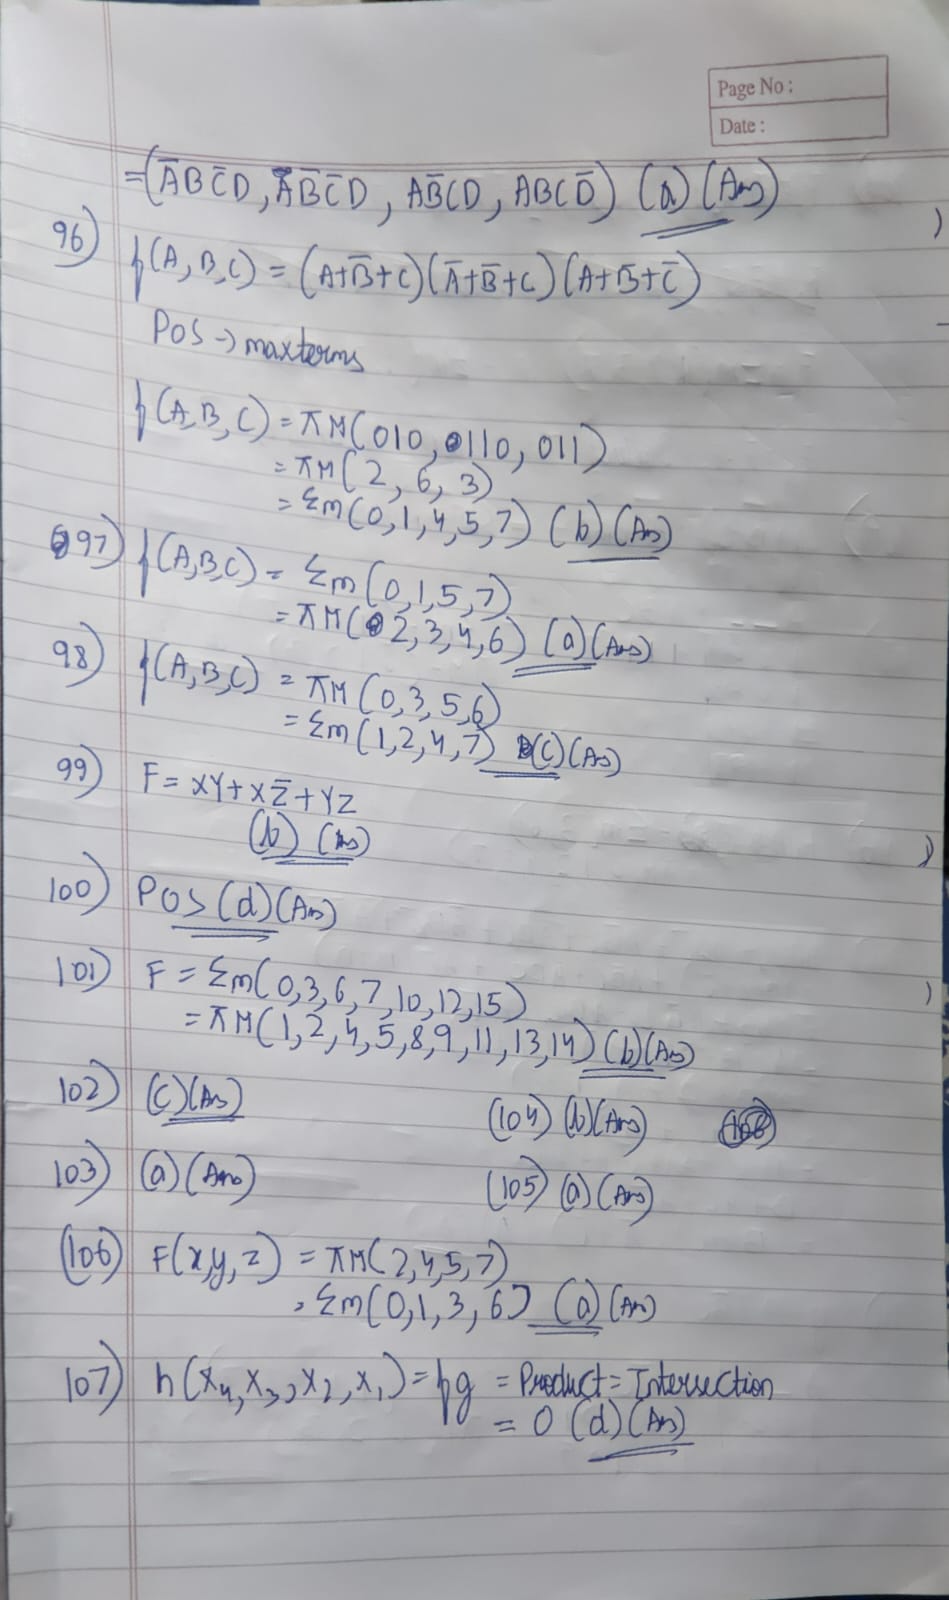 Page No :
Date :
= (A̅BC̅D, A̅B̅C̅D, AB̅CD, ABCD̅) (a) (Ans)
96) f(A, B, C) = (A+B̅+C)(A̅+B̅+C)(A+B̅+C̅)
POS → maxterms
f(A, B, C) = πM(010, 110, 011)
= πM(2, 6, 3)
= Σm(0,1,4,5,7) (b) (Ans)
97) f(A,B,C) = Σm(0,1,5,7)
= πM(2,3,4,6) (a) (Ans)
98) f(A,B,C) = πM(0,3,5,6)
= Σm(1,2,4,7) (c) (Ans)
99) F = XY + XZ̅ + YZ
(b) (Ans)
100) POS (d) (Ans)
101) F = Σm(0,3,6,7,10,12,15)
= πM(1,2,4,5,8,9,11,13,14) (b) (Ans)
102) (c) (Ans) (104) (b) (Ans)
103) (a) (Ans) (105) (a) (Ans)
(106) F(x,y,z) = πM(2,4,5,7)
= Σm(0,1,3,6) (a) (Ans)
107) h(x₄, x₃, x₂, x₁) = fg = Product = Intersection
= 0 (d) (Ans)